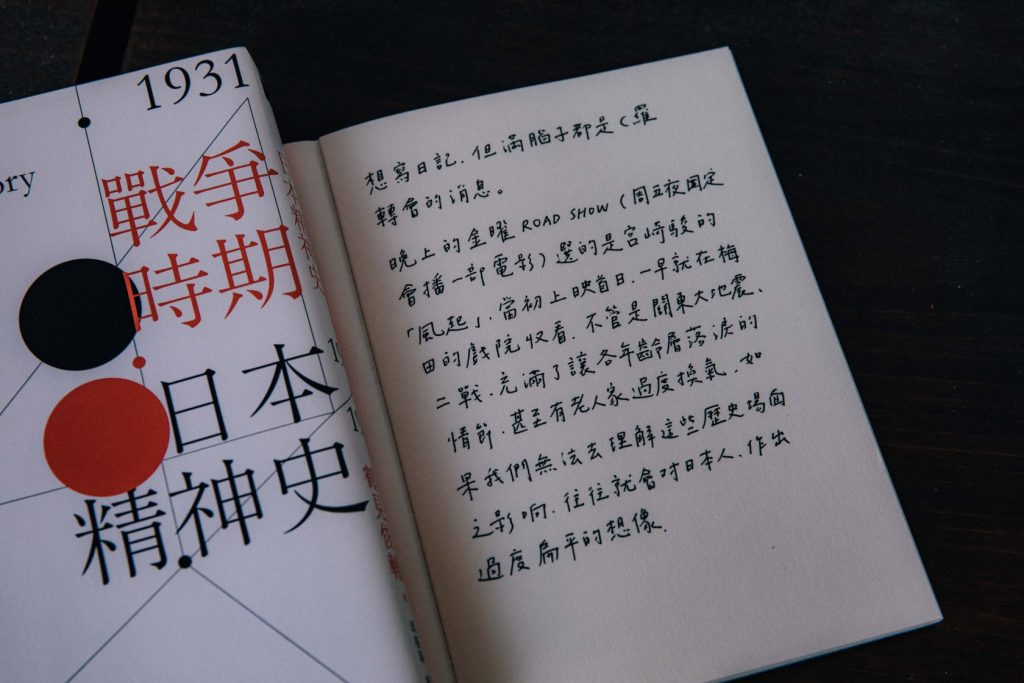 1931
ory
戰爭
時期
日本
精神史
想寫日記．但滿腦子都是C羅
轉會的消息。
晚上的金曜 ROAD SHOW（周五夜固定
會播一部電影）選的是宮崎駿的
「風起」．當初上映首日．一早就在梅
田的戲院收看．不管是關東大地震、
二戰．充滿了讓各年齡層落淚的
情節．甚至有老人家過度換氣．如
果我們無法去理解這些歷史場面
之影响．往往就會对日本人．作出
過度扁平的想像．